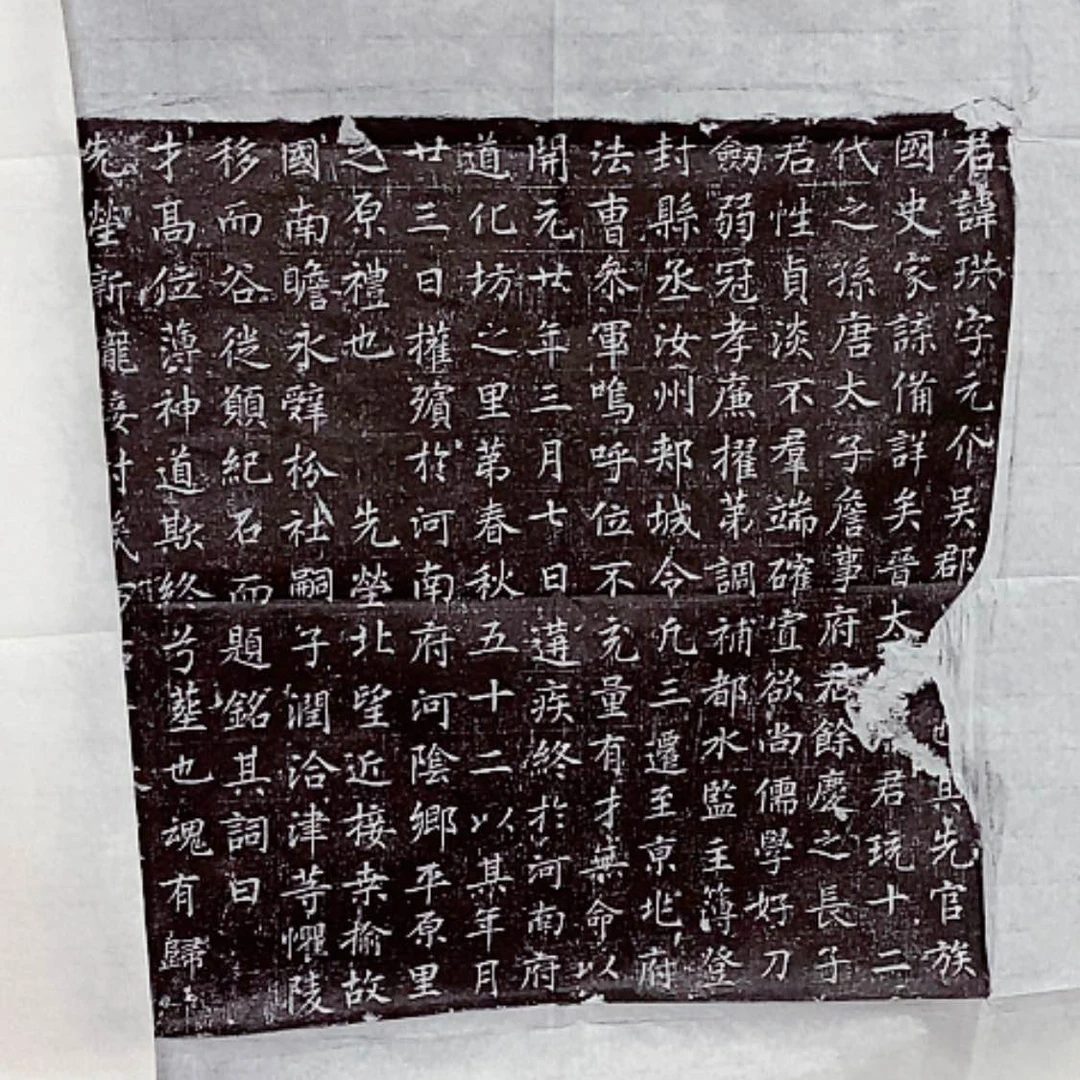 君諱珙字元介吴郡也其先官族
國史家諑備詳矣晉太君玩十二
代之孫唐太子詹事府君餘慶之長子
君性貞淡不羣端確宣欲尚儒學好刀
劒弱冠孝廉擢第調補都水監主簿登
封縣丞汝州郟城令凢三遷至東北府
法曹叅軍嗚呼位不充量有才無命以
開元廿年三月七日遘疾終於河南府
道化坊之里第春秋五十二以其年月
廿三日攉殯於河南府河陰鄉平原里
之原禮也先塋北朢近接桒榆故
國南瞻永辤枌社嗣子潤洽津等懼陵
移而谷徙顛紀石而題銘其詞曰
才高位薄神道欺終兮塟也魂有歸
先塋新壠接